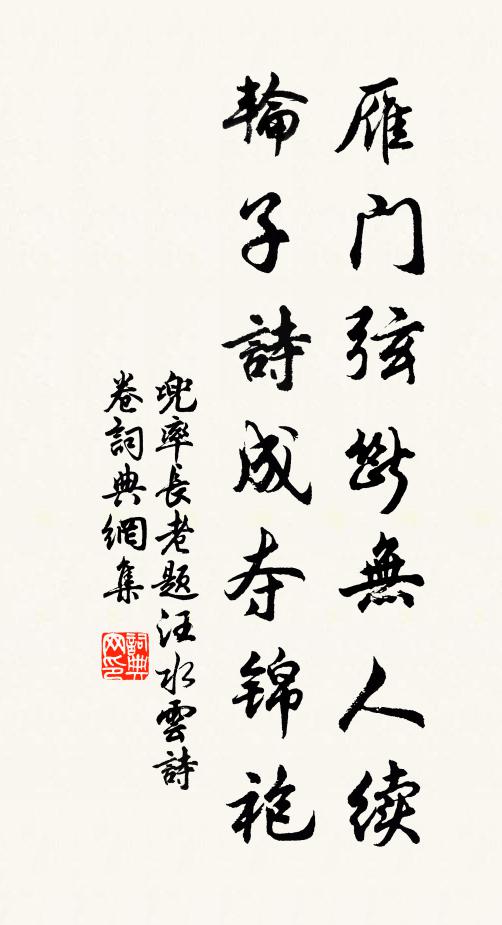 雁门弦断無人续
輪子詩成夺锦袍
兜率長老题汪水雲詩
卷詞典網集
詞典网印